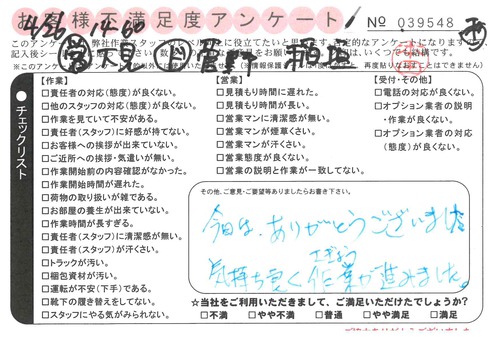 お客様不満足度アンケート
No 039548
4/26 14:00
このアンケートは弊社作業スタッフの
※このアンケート
【作業】
□責任者の対応(態度)が良くない。
□他のスタッフの対応(態度)が良くない。
□作業を見ていて不安がある。
□責任者(スタッフ)に好感が持てない。
□お客様への挨拶が出来ていない。
□ご近所への挨拶・気遣いが無い。
□作業開始前の内容確認がなかった。
□作業開始時間が遅れた。
□荷物の取り扱いが雑である。
□お部屋の養生が出来ていない。
□作業時間が長すぎる。
□責任者(スタッフ)に清潔感が無い。
□責任者(スタッフ)が汗くさい。
□トラックが汚い。
□梱包資材が汚い。
□運転が不安(下手)である。
□靴下の履き替えをしてない。
□スタッフにやる気がみられない。
チェックリスト
【営業】
□見積もり時間に遅れた。
□見積もり時間が長い。
□営業マンに清潔感が無い。
□営業マンが煙草くさい。
□営業マンが汗くさい。
□営業態度が良くない。
□営業の説明と作業が一致してない。
【受付・その他】
□電話の対応が良くない。
□オプション業者の説明
・作業が良くない。
□オプション業者の対応
(態度)が良くない。
その他、ご意見・ご要望等ありましたらお書き下さい。
今日は、ありがとうございました
気持ち良く作業が進みました。
さぎょう
☆当社をご利用いただきまして、ご満足いただけたでしょうか?
□不満 □やや不満 □普通 □やや満足 □満足